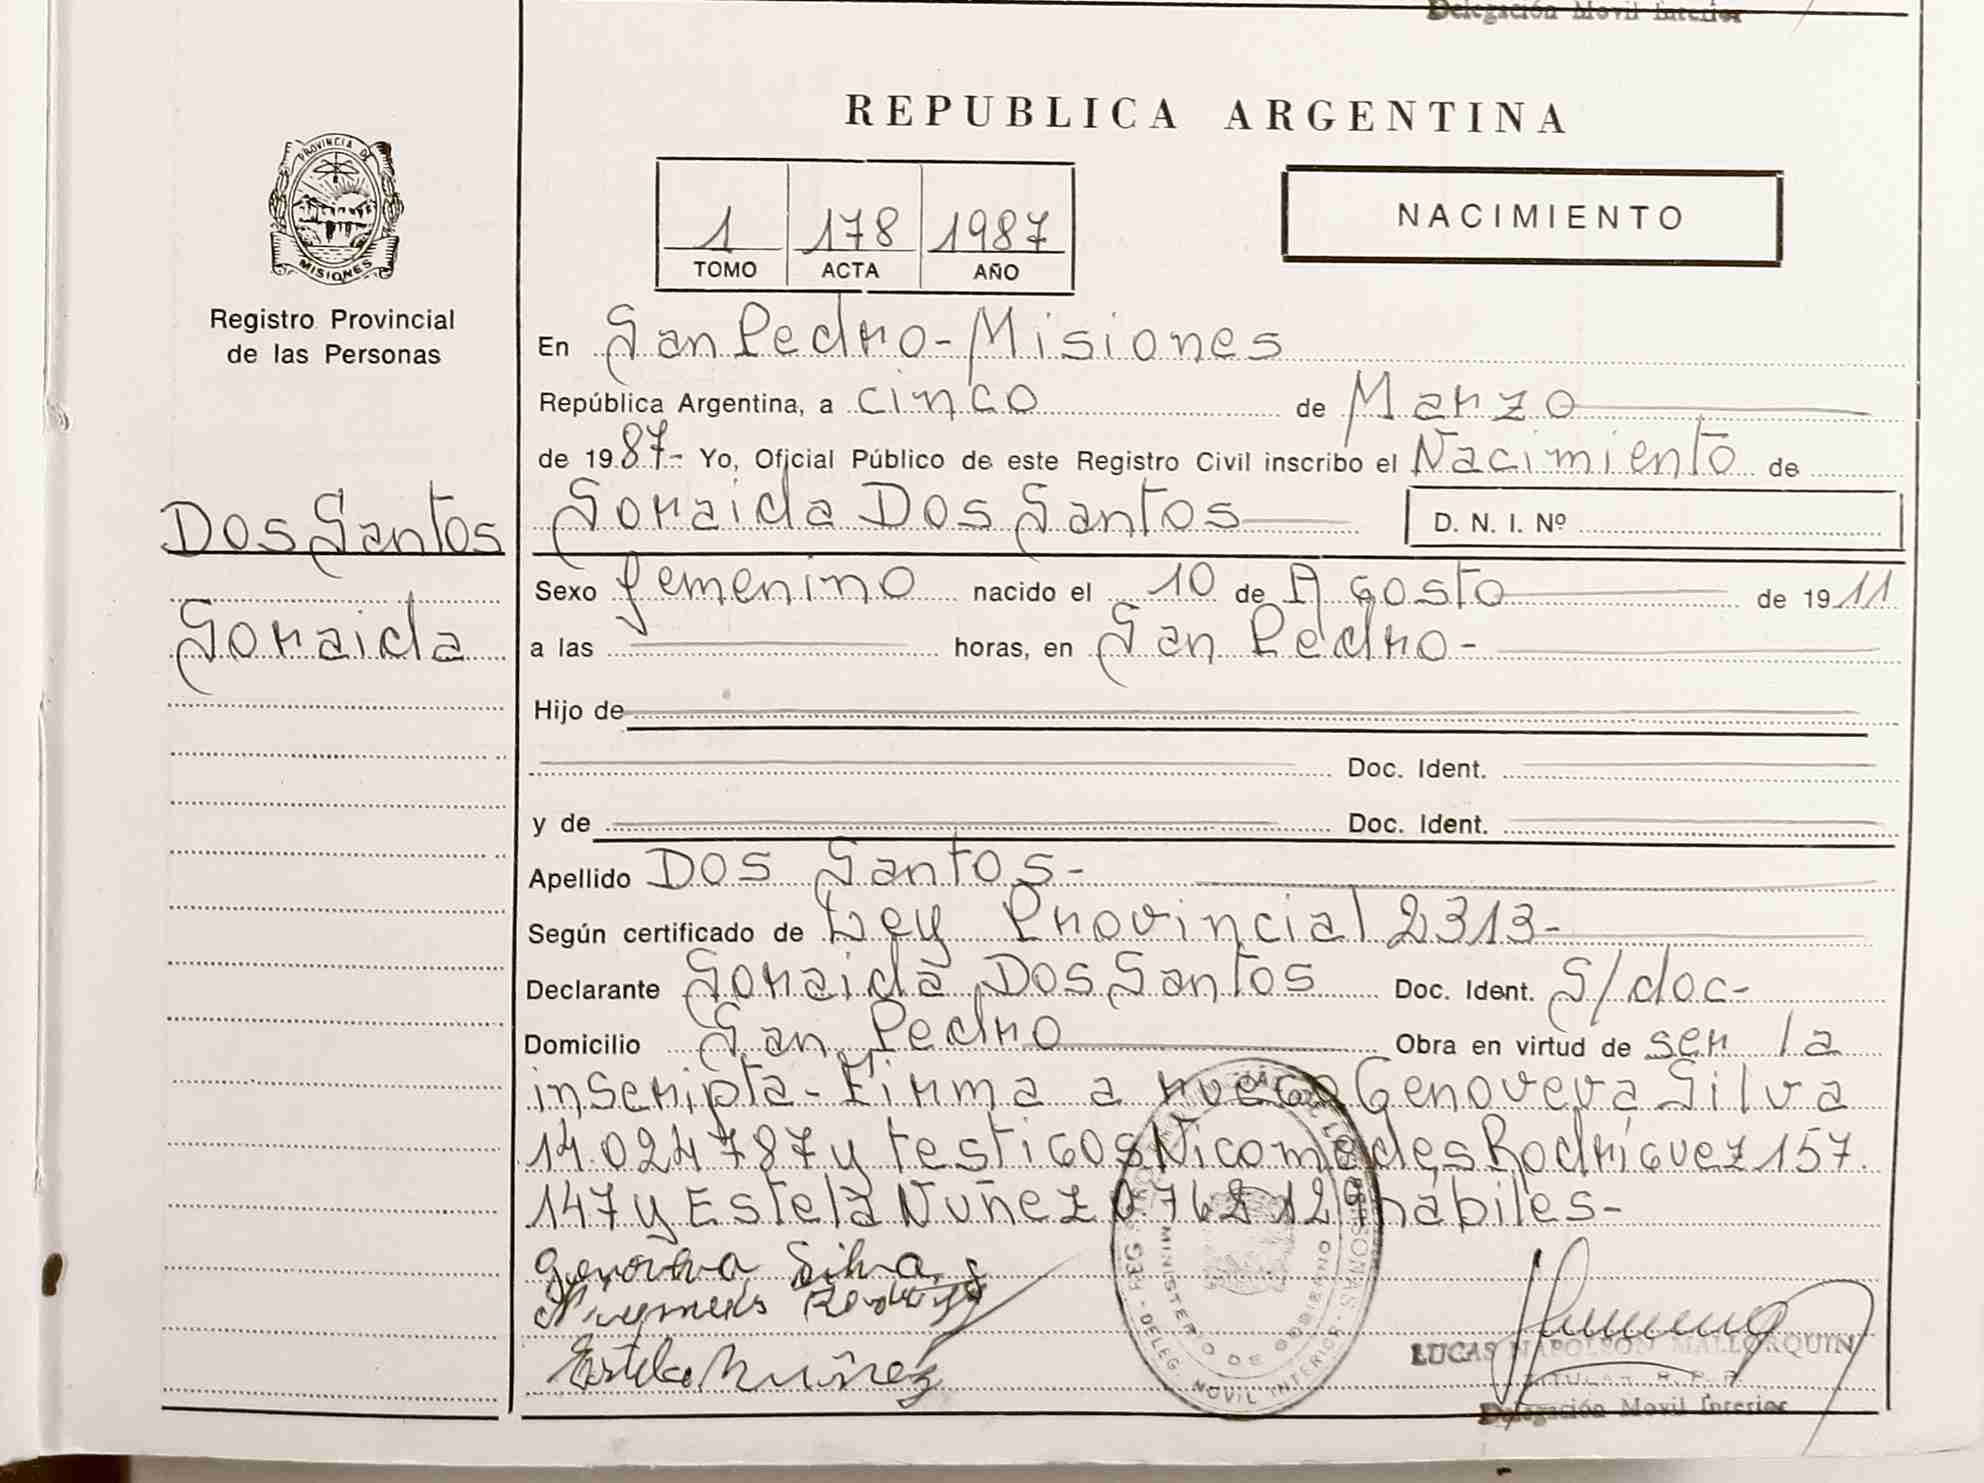 Delegación Movil Interior
REPUBLICA ARGENTINA
PROVINCIA DE
MISIONES
Registro Provincial
de las Personas
1 178 1987
TOMO ACTA AÑO
NACIMIENTO
En San Pedro - Misiones
República Argentina, a cinco de Marzo
de 1987- Yo, Oficial Público de este Registro Civil inscribo el Nacimiento de
Dos Santos
Soraida
Soraida Dos Santos D. N. I. Nº
Sexo femenino nacido el 10 de Agosto de 1911
a las horas, en San Pedro-
Hijo de
Doc. Ident.
y de Doc. Ident.
Apellido Dos Santos-
Según certificado de Ley Provincial 2313-
Declarante Soraida Dos Santos Doc. Ident. S/doc-
Domicilio San Pedro Obra en virtud de ser la
inscripta - Firma a ruego Genoveva Silva
14.024787 y testigos Nicomedes Rodríguez 157.
147 y Estela Nuñez hábiles-
Genoveva Silva
Estela Nuñez
MINISTERIO DE GOBIERNO
DELEG. MOVIL INTERIOR
LUCAS NAPOLEON MALLORQUIN
TITULAR R.P.P.
Delegación Movil Interior